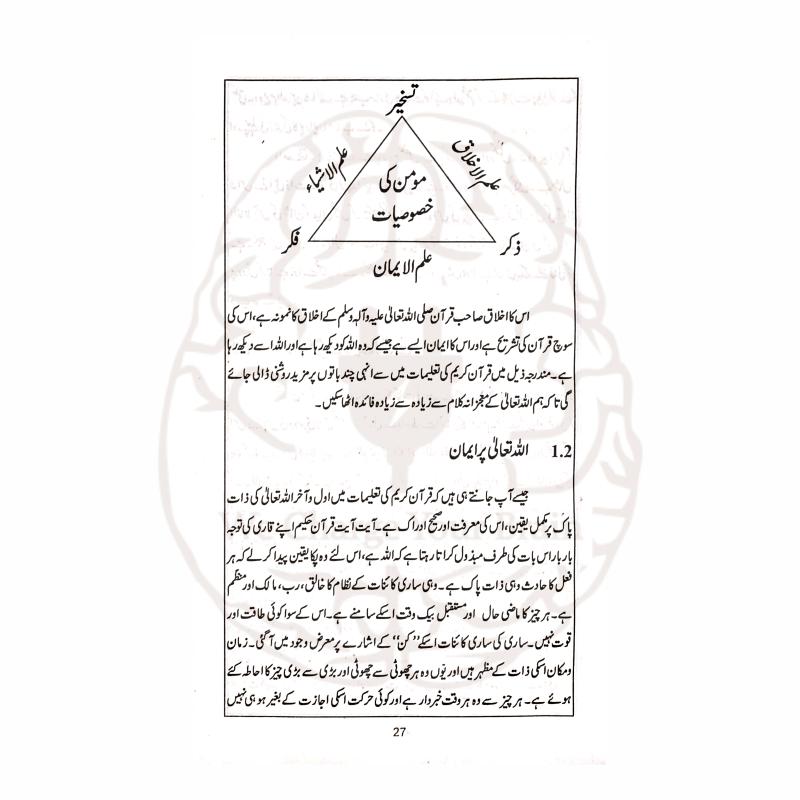 تسخیر
علم الاشیاء
علم الاخلاق
مؤمن کی
خصوصیات
فکر
ذکر
علم الایمان
اس کا اخلاق صاحب قرآن صلی اللہ تعالیٰ علیہ وآلہ وسلم کے اخلاق کا نمونہ ہے، اس کی
سوچ قرآن کی تشریح ہے اور اس کا ایمان ایسے ہے جیسے کہ وہ اللہ کو دیکھ رہا ہے اور اللہ اسے دیکھ رہا
ہے۔ مندرجہ ذیل میں قرآن کریم کی تعلیمات میں سے انہی چند باتوں پر مزید روشنی ڈالی جائے
گی تا کہ ہم اللہ تعالیٰ کے معجزانہ کلام سے زیادہ سے زیادہ فائدہ اٹھا سکیں۔
1.2 اللہ تعالیٰ پر ایمان
جیسے آپ جانتے ہی ہیں کہ قرآن کریم کی تعلیمات میں اول و آخر اللہ تعالیٰ کی ذات
پاک پر مکمل یقین، اس کی معرفت اور صحیح ادراک ہے۔ آیت آیت قرآن حکیم اپنے قاری کی توجہ
بار بار اس بات کی طرف مبذول کراتا رہتا ہے کہ اللہ ہے، اس لئے وہ پکا یقین پیدا کر لے کہ ہر
فعل کا حادث وہی ذات پاک ہے۔ وہی ساری کائنات کے نظام کا خالق، رب، مالک اور منظم
ہے۔ ہر چیز کا ماضی حال اور مستقبل بیک وقت اسکے سامنے ہے۔ اس کے سوا کوئی طاقت اور
قوت نہیں۔ ساری کی ساری کائنات اسکے ”کن“ کے اشارے پر معرض وجود میں آ گئی۔ زمان
و مکان اسکی ذات کے مظہر ہیں اور یوں وہ ہر چھوٹی سے چھوٹی اور بڑی سے بڑی چیز کا احاطہ کئے
ہوئے ہے۔ ہر چیز سے وہ ہر وقت خبردار ہے اور کوئی حرکت اسکی اجازت کے بغیر ہو ہی نہیں
27